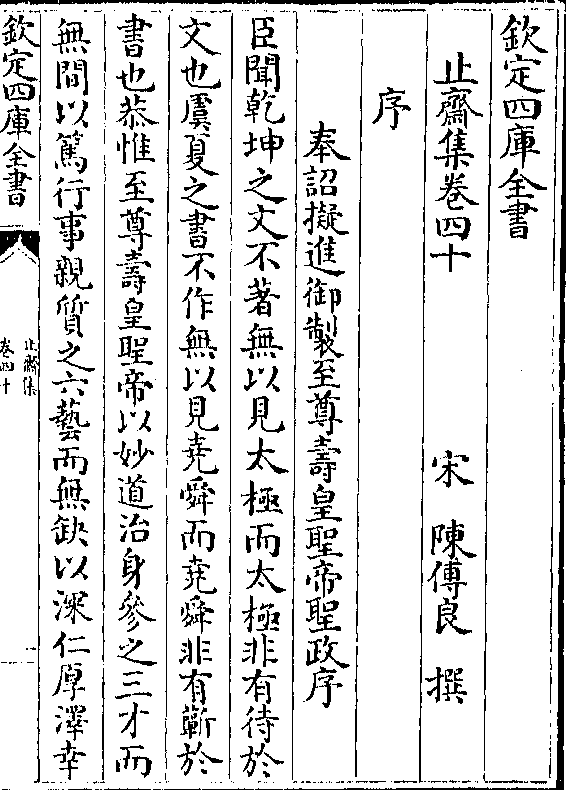 欽定四庫全書
止齋集卷四十　宋　陳傅良　撰
序
奉詔擬進御製至尊壽皇聖帝聖政序
臣聞乾坤之文不著無以見太極而太極非有待於
文也虞夏之書不作無以見堯舜而堯舜非有蘄於
書也恭惟至尊壽皇聖帝以妙道治身參之三才而
無間以篤行事親質之六藝而無缺以深仁厚澤幸
欽定四庫全書
止齋集
卷四十
一